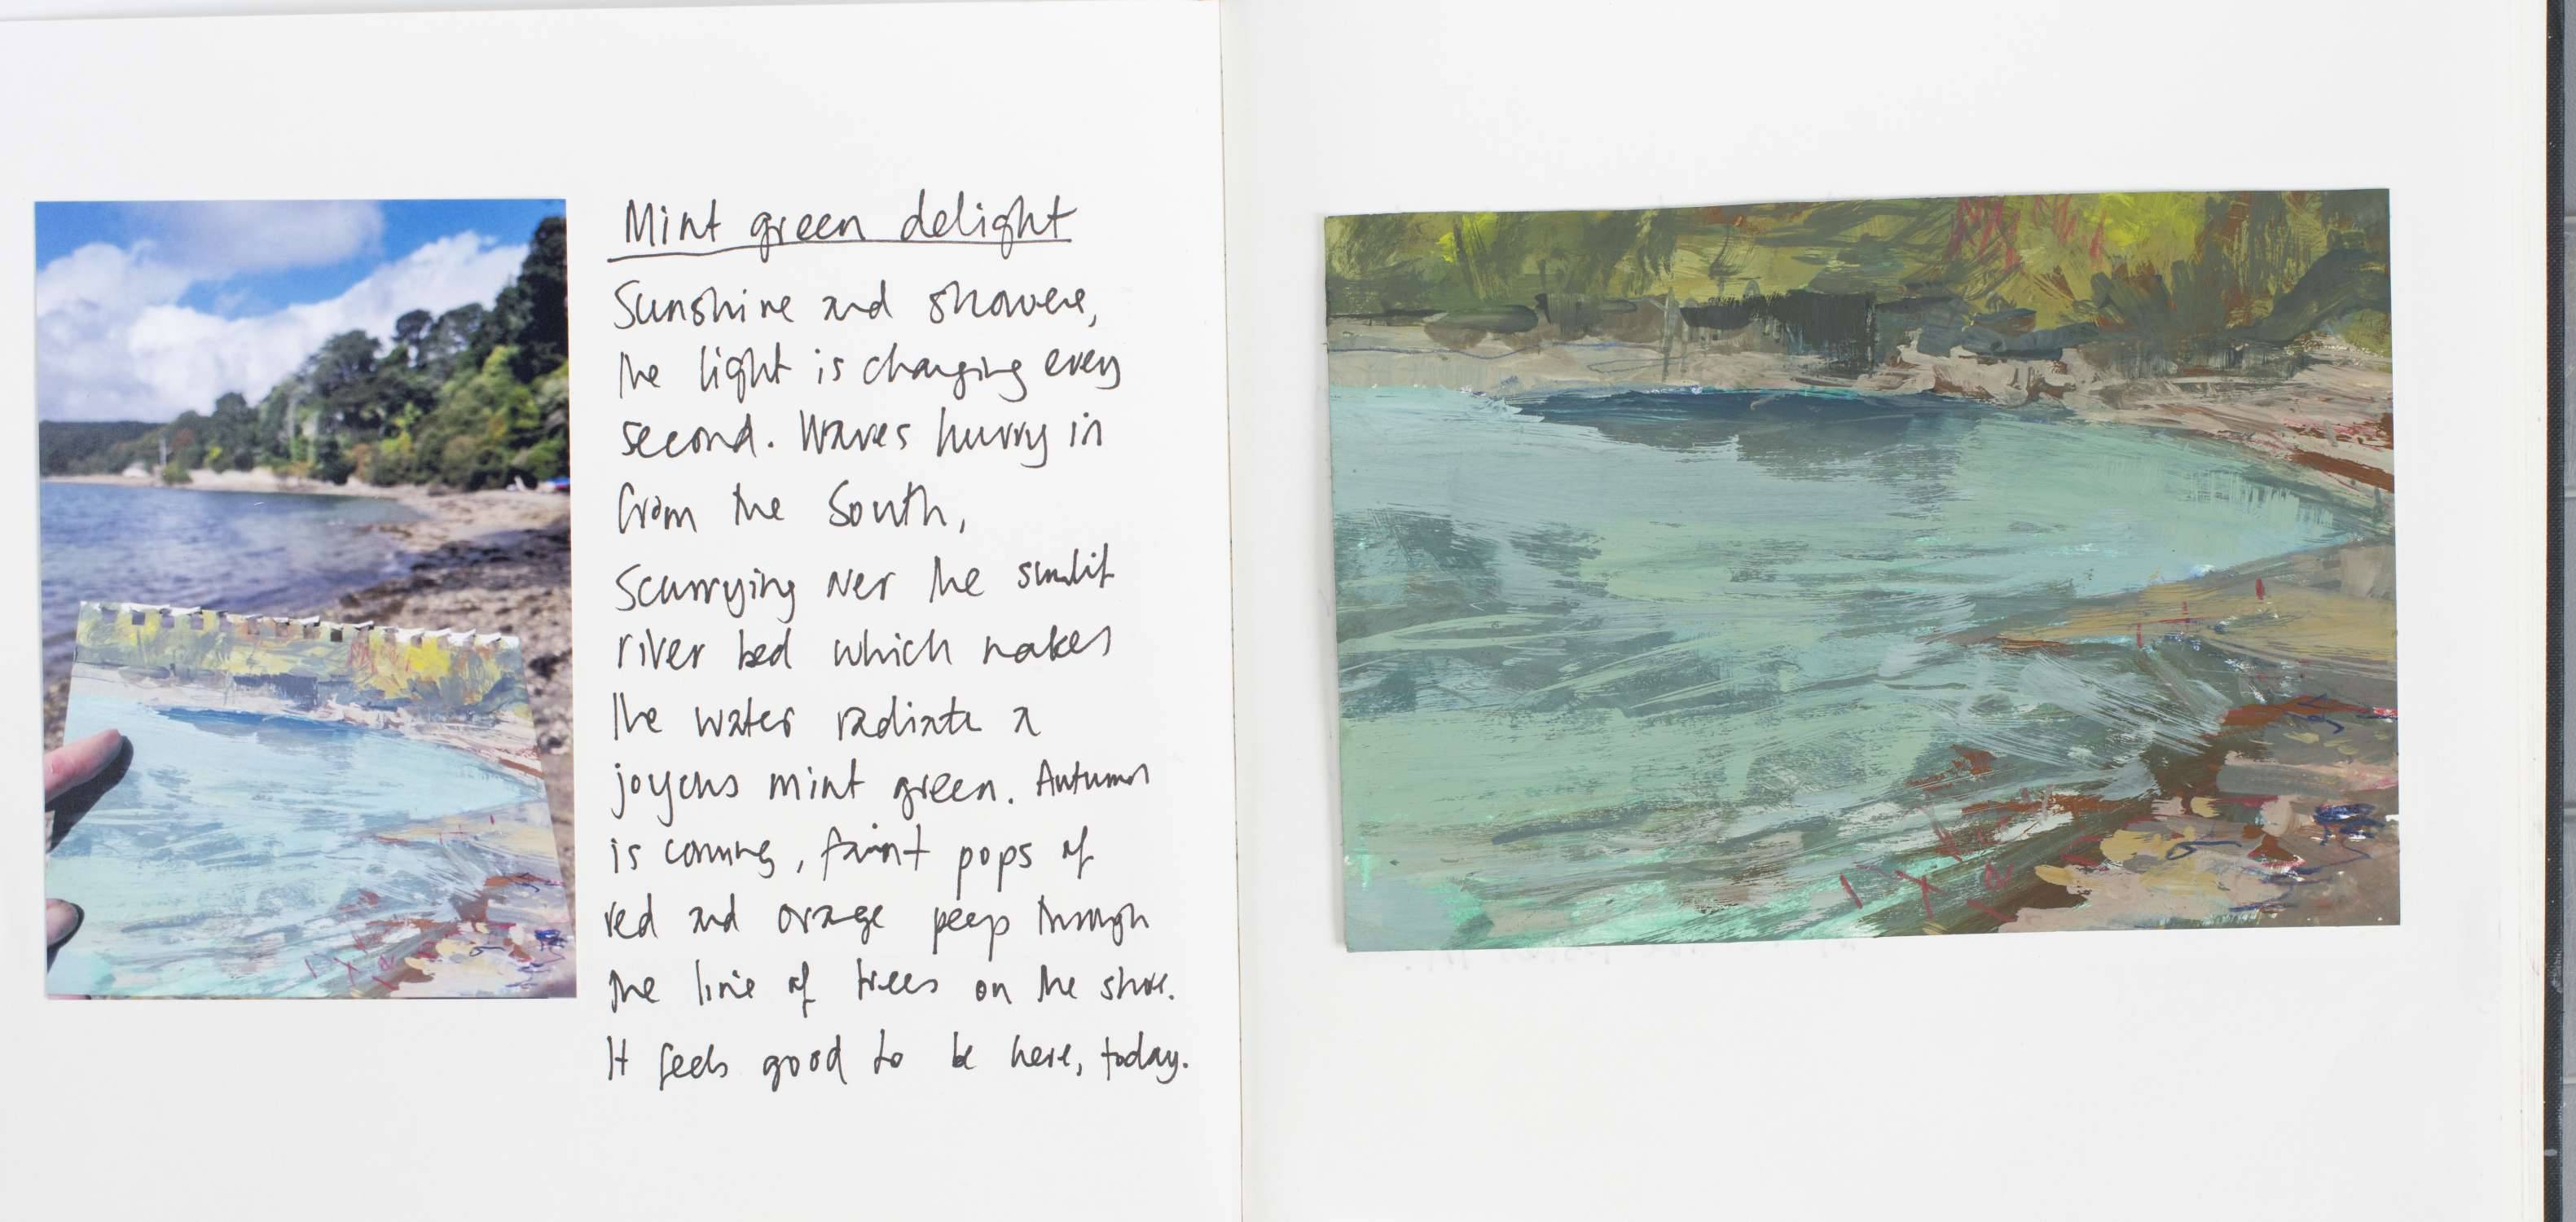 Mint green delight
Sunshine and showers,
the light is changing every
second. Waves hurry in
from the South,
Scurrying over the sunlit
river bed which makes
the water radiate a
joyous mint green. Autumn
is coming, faint pops of
red and orange peep through
the line of trees on the shore.
It feels good to be here, today.